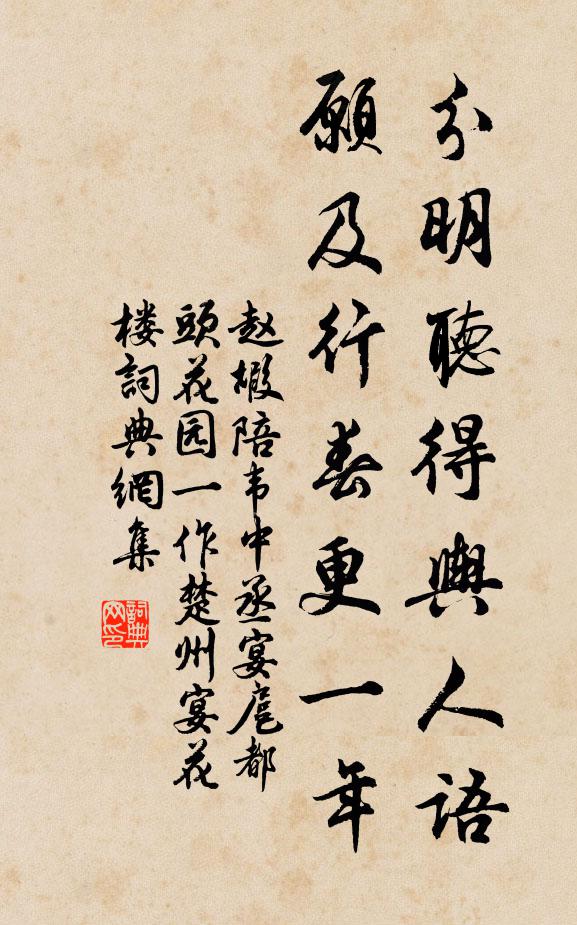 分明聽得輿人語
願及行春更一年
赵嘏陪韦中丞宴扈都
頭花园一作楚州宴花
楼詞典網集
詞典
网印